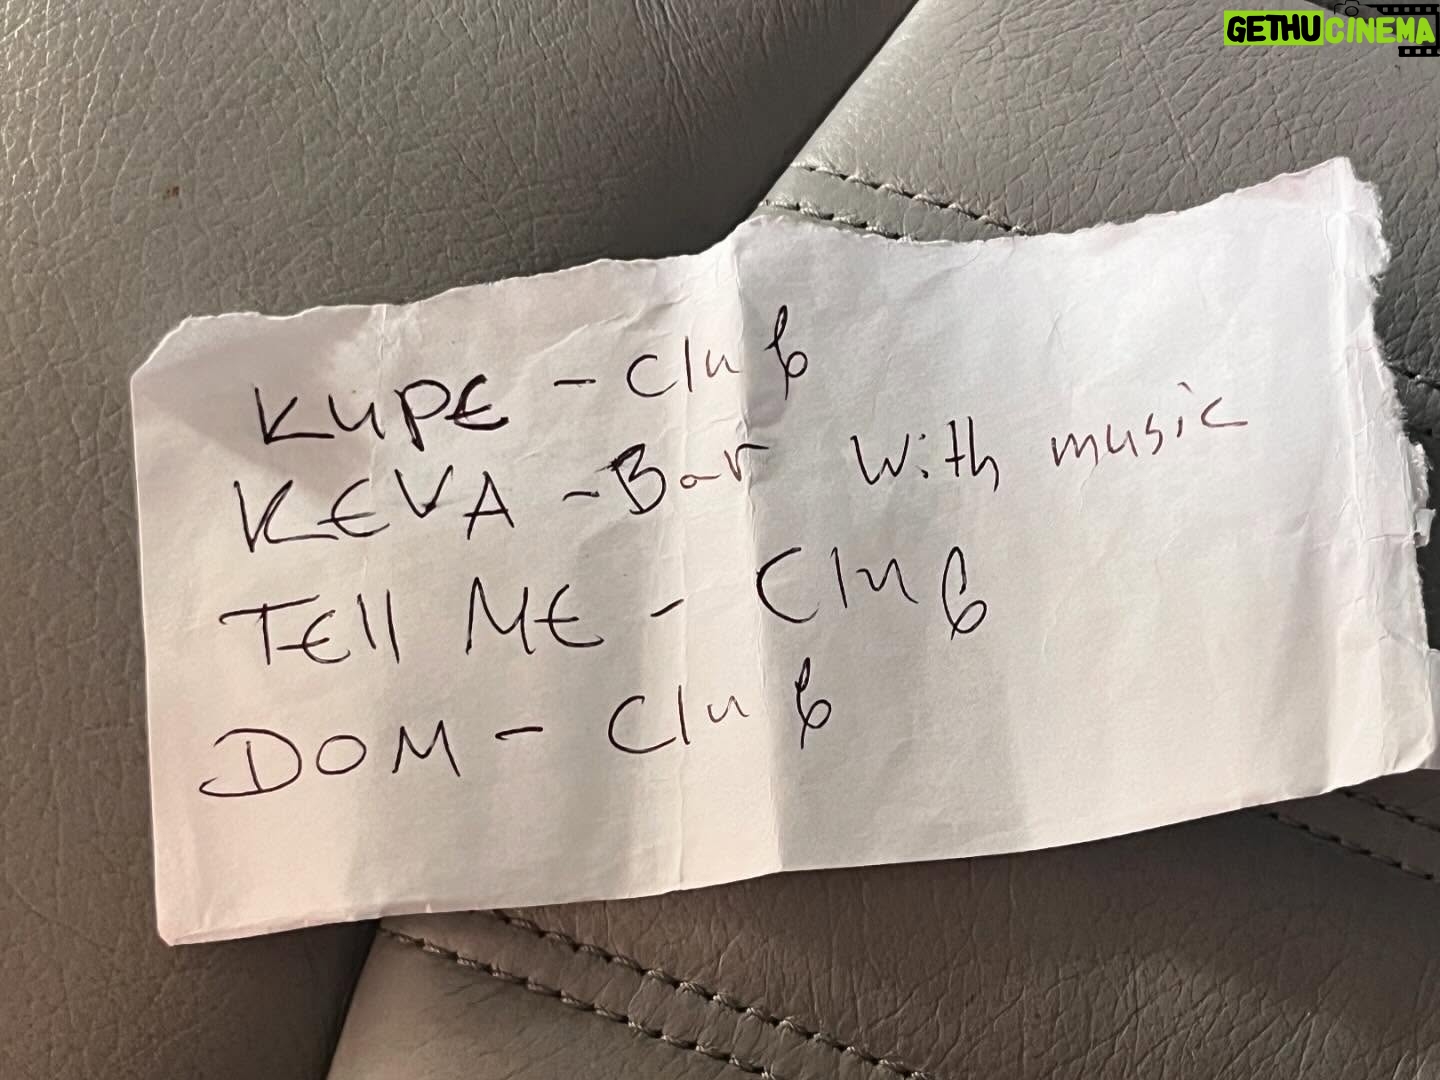 GETHUCINEMA
KUPE - Club
KEVA - Bar With music
TEll ME - Club
DOM - Club